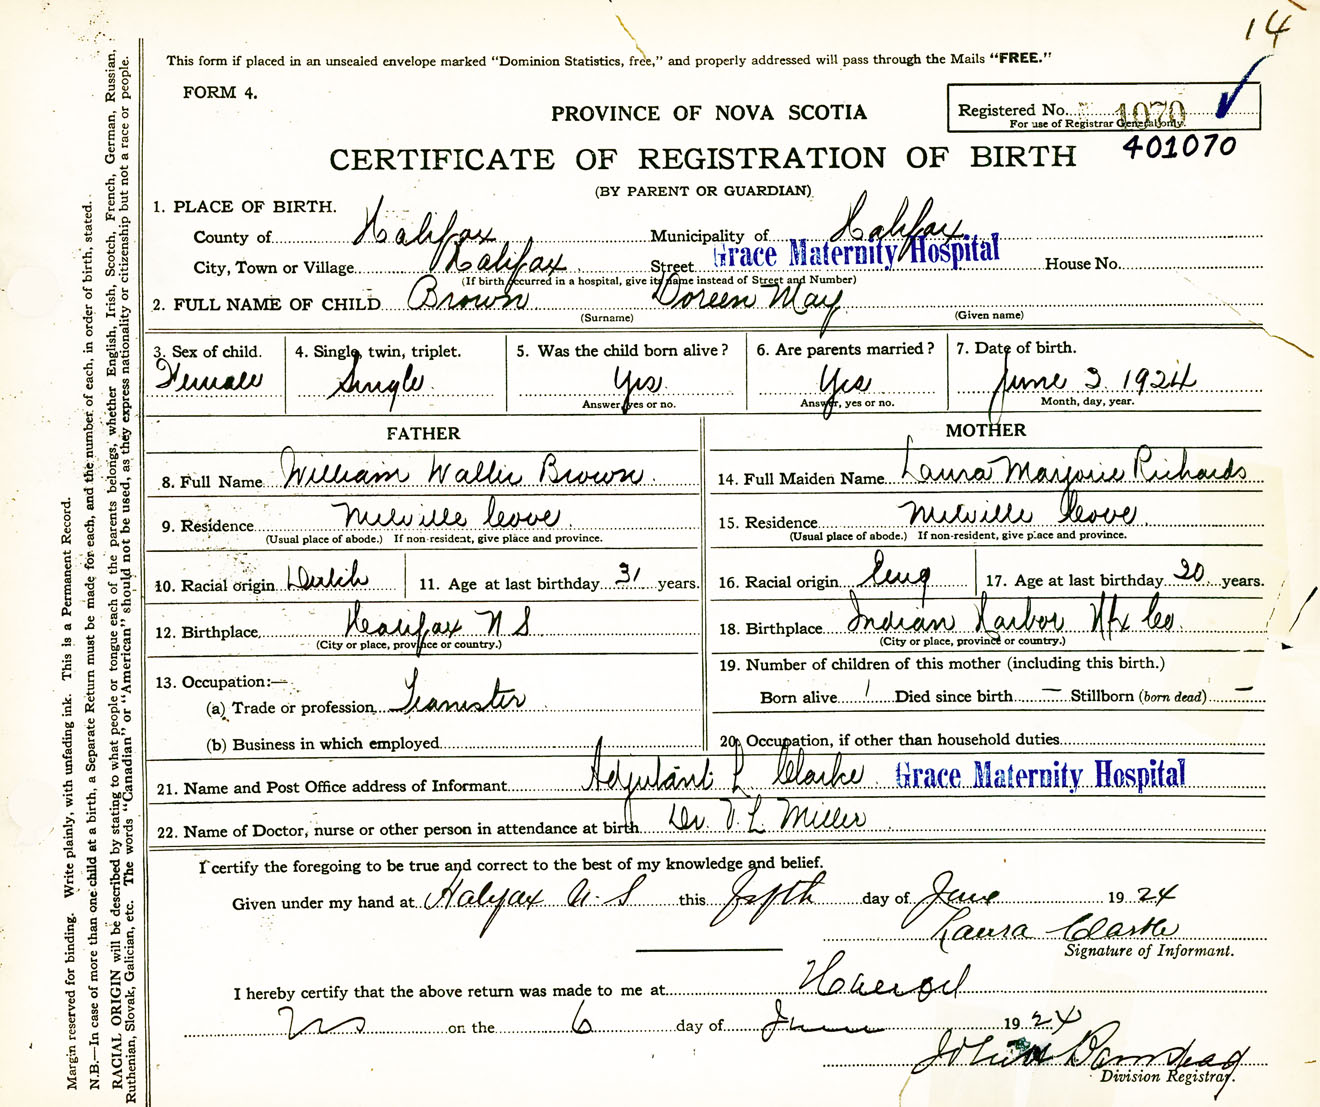 14
This form if placed in an unsealed envelope marked "Dominion Statistics, free," and properly addressed will pass through the Mails "FREE."
FORM 4.
PROVINCE OF NOVA SCOTIA
Registered No. 1070
For use of Registrar General only.
401070
CERTIFICATE OF REGISTRATION OF BIRTH
(BY PARENT OR GUARDIAN)
1. PLACE OF BIRTH.
County of Halifax Municipality of Halifax
City, Town or Village Halifax Street Grace Maternity Hospital House No.
(If birth occurred in a hospital, give its name instead of Street and Number)
2. FULL NAME OF CHILD Brown Doreen May
(Surname) (Given name)
3. Sex of child. 4. Single, twin, triplet. 5. Was the child born alive? 6. Are parents married? 7. Date of birth.
Female Single Yes Yes June 3 1924
Answer, yes or no. Answer, yes or no. Month, day, year.
FATHER MOTHER
8. Full Name William Wallie Brown 14. Full Maiden Name Laura Marjorie Richards
9. Residence Melville Cove 15. Residence Melville Cove
(Usual place of abode.) If non-resident, give place and province. (Usual place of abode.) If non-resident, give place and province.
10. Racial origin 11. Age at last birthday 31 years. 16. Racial origin Eng 17. Age at last birthday 20 years.
12. Birthplace Halifax N S 18. Birthplace Indian Harbor Hfx Co.
(City or place, province or country.) (City or place, province or country.)
13. Occupation:— 19. Number of children of this mother (including this birth.)
(a) Trade or profession Teamster Born alive 1 Died since birth — Stillborn (born dead) —
(b) Business in which employed 20. Occupation, if other than household duties
21. Name and Post Office address of Informant Adjutant L Clarke. Grace Maternity Hospital
22. Name of Doctor, nurse or other person in attendance at birth Dr. V. L. Miller
I certify the foregoing to be true and correct to the best of my knowledge and belief.
Given under my hand at Halifax N.S this fifth day of June 1924
Laura Clarke
Signature of Informant.
I hereby certify that the above return was made to me at
NS on the 6 day of June 1924
Division Registrar.
Margin reserved for binding. Write plainly, with unfading ink. This is a Permanent Record.
N.B.—In case of more than one child at a birth, a Separate Return must be made for each, and the number of each, in order of birth, stated.
RACIAL ORIGIN will be described by stating to what people or tongue each of the parents belongs, whether English, Irish, Scotch, French, German, Russian,
Ruthenian, Slovak, Galician, etc. The words "Canadian" or "American" should not be used, as they express nationality or citizenship but not a race or people.